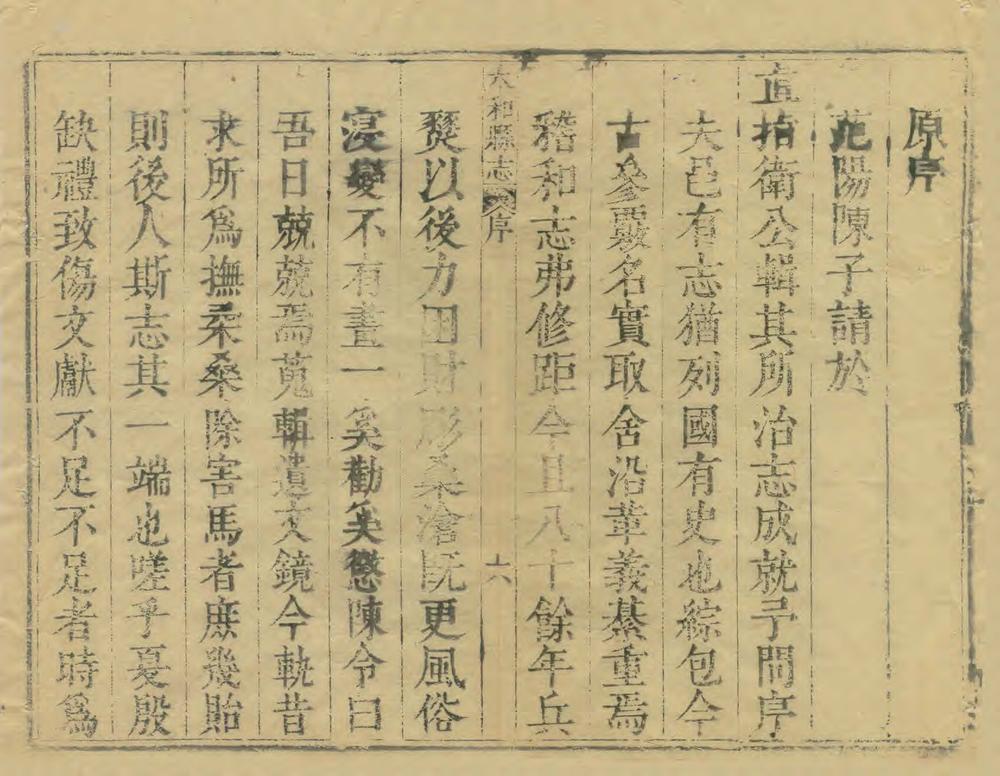 原序
范陽陳子請於
直指衛公輯其所治志成就予問序
夫邑有志猶列國有史也綜包今
古參覈名實取舍沿革義綦重焉
稽和志弗修距今且八十餘年兵
太和縣志 序 十六
燹以後力田財 桑滄既更風俗
寖變不有畫一奚勸奚懲陳令曰
吾日兢兢焉蒐輯遺文鏡今軌昔
求所爲撫柔桑除害馬者庶幾貽
則後人斯志其一端也嗟乎夏殷
缺禮致傷文獻不足不足者時爲